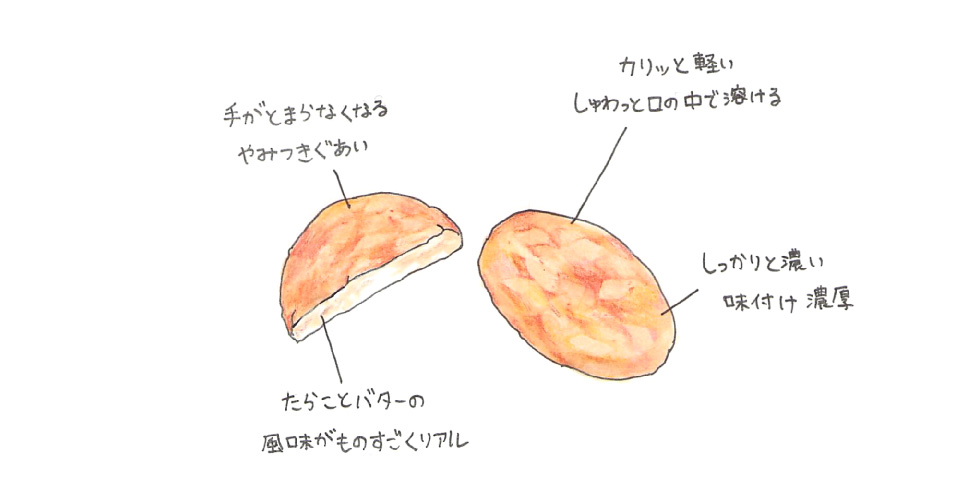 手がとまらなくなる
やみつきぐあい
カリッと軽い
しゅわっと口の中で溶ける
しっかりと濃い
味付け濃厚
たらことバターの
風味がものすごくリアル